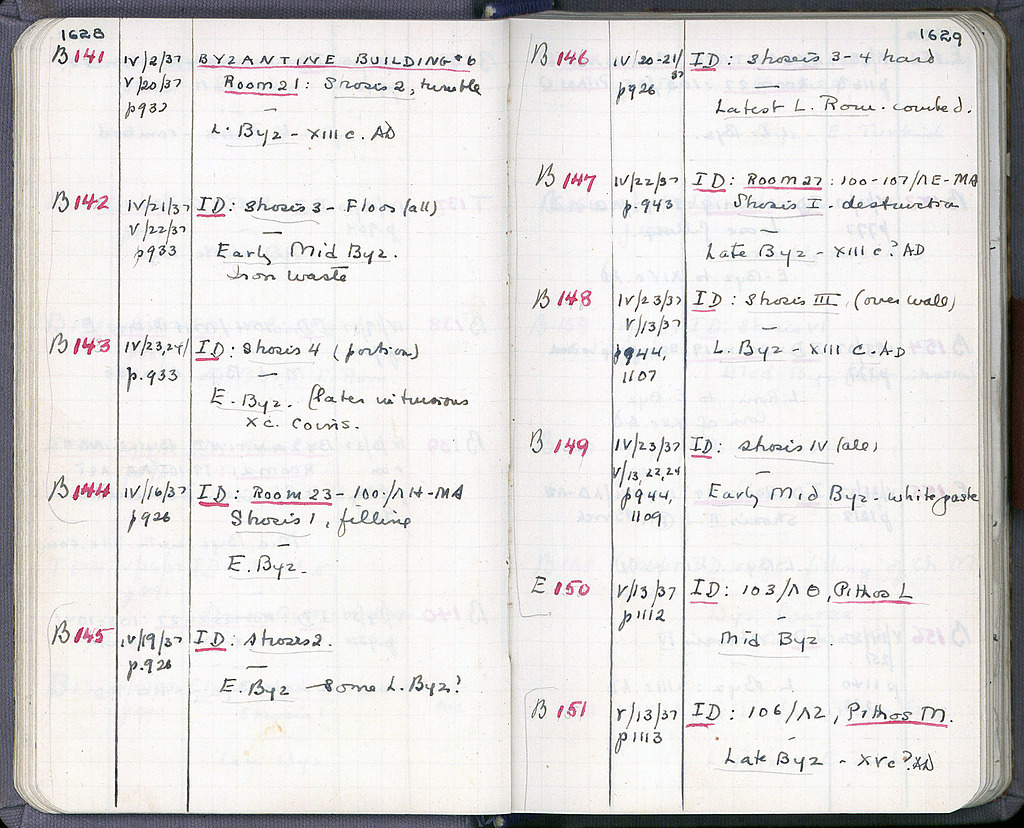 1628
B 141 IV/2/37 BYZANTINE BUILDING #6
V/20/37 Room 21: Strosis 2, tumble
p 937
L. Byz - XIII c. AD
B 142 IV/21/37 ID: Strosis 3 - Floor (all)
V/22/37
p 933 Early Mid Byz.
Iron waste
B 143 IV/23,24/ ID: Strosis 4 (portion)
p. 933
E. Byz. (later intrusions
X c. coins.
B 144 IV/16/37 ID: Room 23 - 100:/ΛΗ-ΜΑ
p 926 Strosis 1, filling
E. Byz.
B 145 IV/19/37 ID: Strosis 2.
p. 926
E. Byz - some L. Byz?
1629
B 146 IV/20-21/37 ID: Strosis 3-4 hard
p 926
Latest L. Rom. combed.
B 147 IV/22/37 ID: Room 27: 100-107/ΛΕ-ΜΑ
p. 943 Strosis I - destruction
Late Byz - XIII c? AD
B 148 IV/23/37 ID: Strosis III, (over wall)
V/13/37
p944, L. Byz - XIII C. AD
1107
B 149 IV/23/37 ID: Strosis IV (ale)
V/13,22,24
p944, Early Mid Byz - white paste
1109
E 150 V/13/37 ID: 103/ΛΘ, Pithos L
p 1112
Mid Byz.
B 151 V/13/37 ID: 106/ΛΖ, Pithos M.
p 1113
Late Byz - XV c? AD